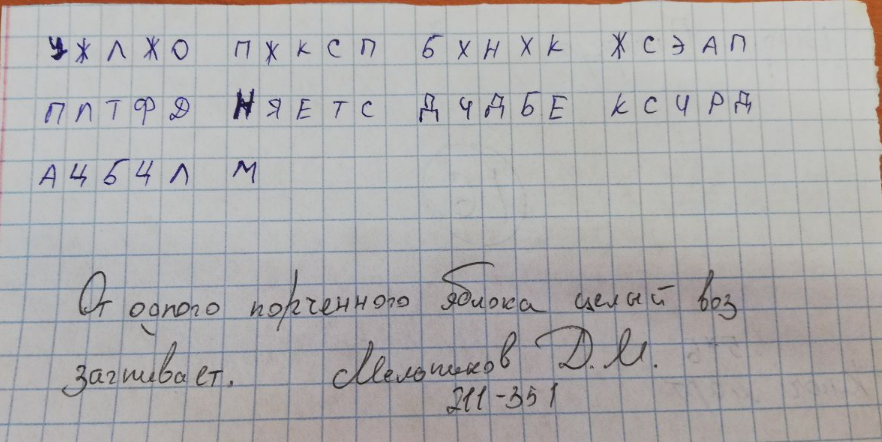 УЖЛЖО ПЖКСП БХНХК ЖСЭАП
ППТФД НЯЕТС ДЧДБЕ КСЧРД
АЦБЦЛ М
От одного порченного яблока целый воз
загнивает. Мельников Д.М.
211-351